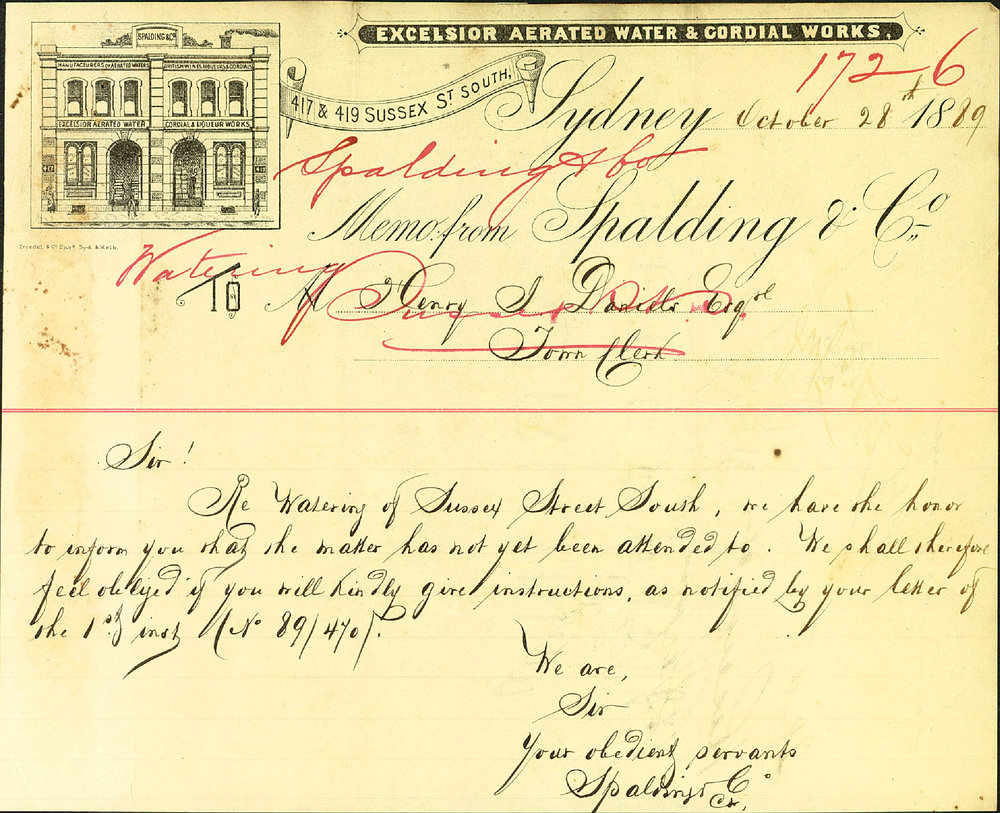 EXCELSIOR AERATED WATER & CORDIAL WORKS.
SPALDING & Co
MANUFACTURERS OF AERATED WATERS
BRITISH WINES, LIQUEURS & CORDIALS
EXCELSIOR AERATED WATER
CORDIAL & LIQUEUR WORKS
417
419
417 & 419 SUSSEX ST SOUTH,
172-6
Sydney October 28th 1889
Spalding & Co
Memo. from Spalding & Co
Troedel & Co Engs Syd & Melb.
Watering
TO M Henry S Daniels Esqre
Sussex St S.
Town Clerk
Sir!
Re Watering of Sussex Street South, we have the honor
to inform you that the matter has not yet been attended to. We shall therefore
feel obliged if you will kindly give instructions, as notified by your letter of
the 1st inst (No 89/470).
We are,
Sir
Your obedient servants
Spalding & Co.